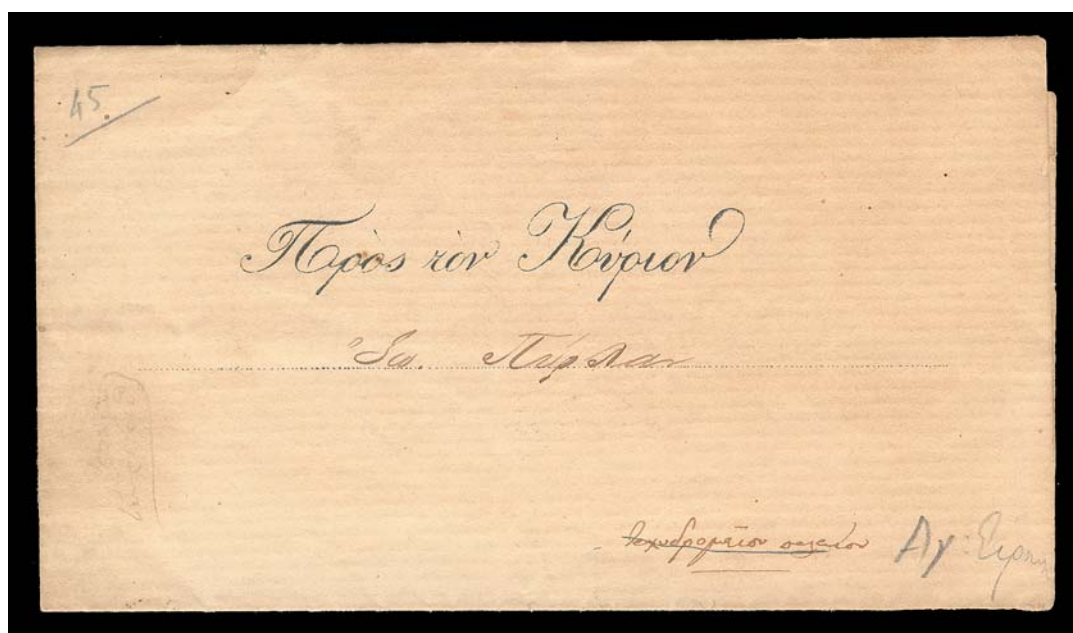 45.
Πρὸς τὸν Κύριον
Ἰω. Πύρλαν
ταχυδρομεῖον παλαιόν
Αγ: Ειρήνη